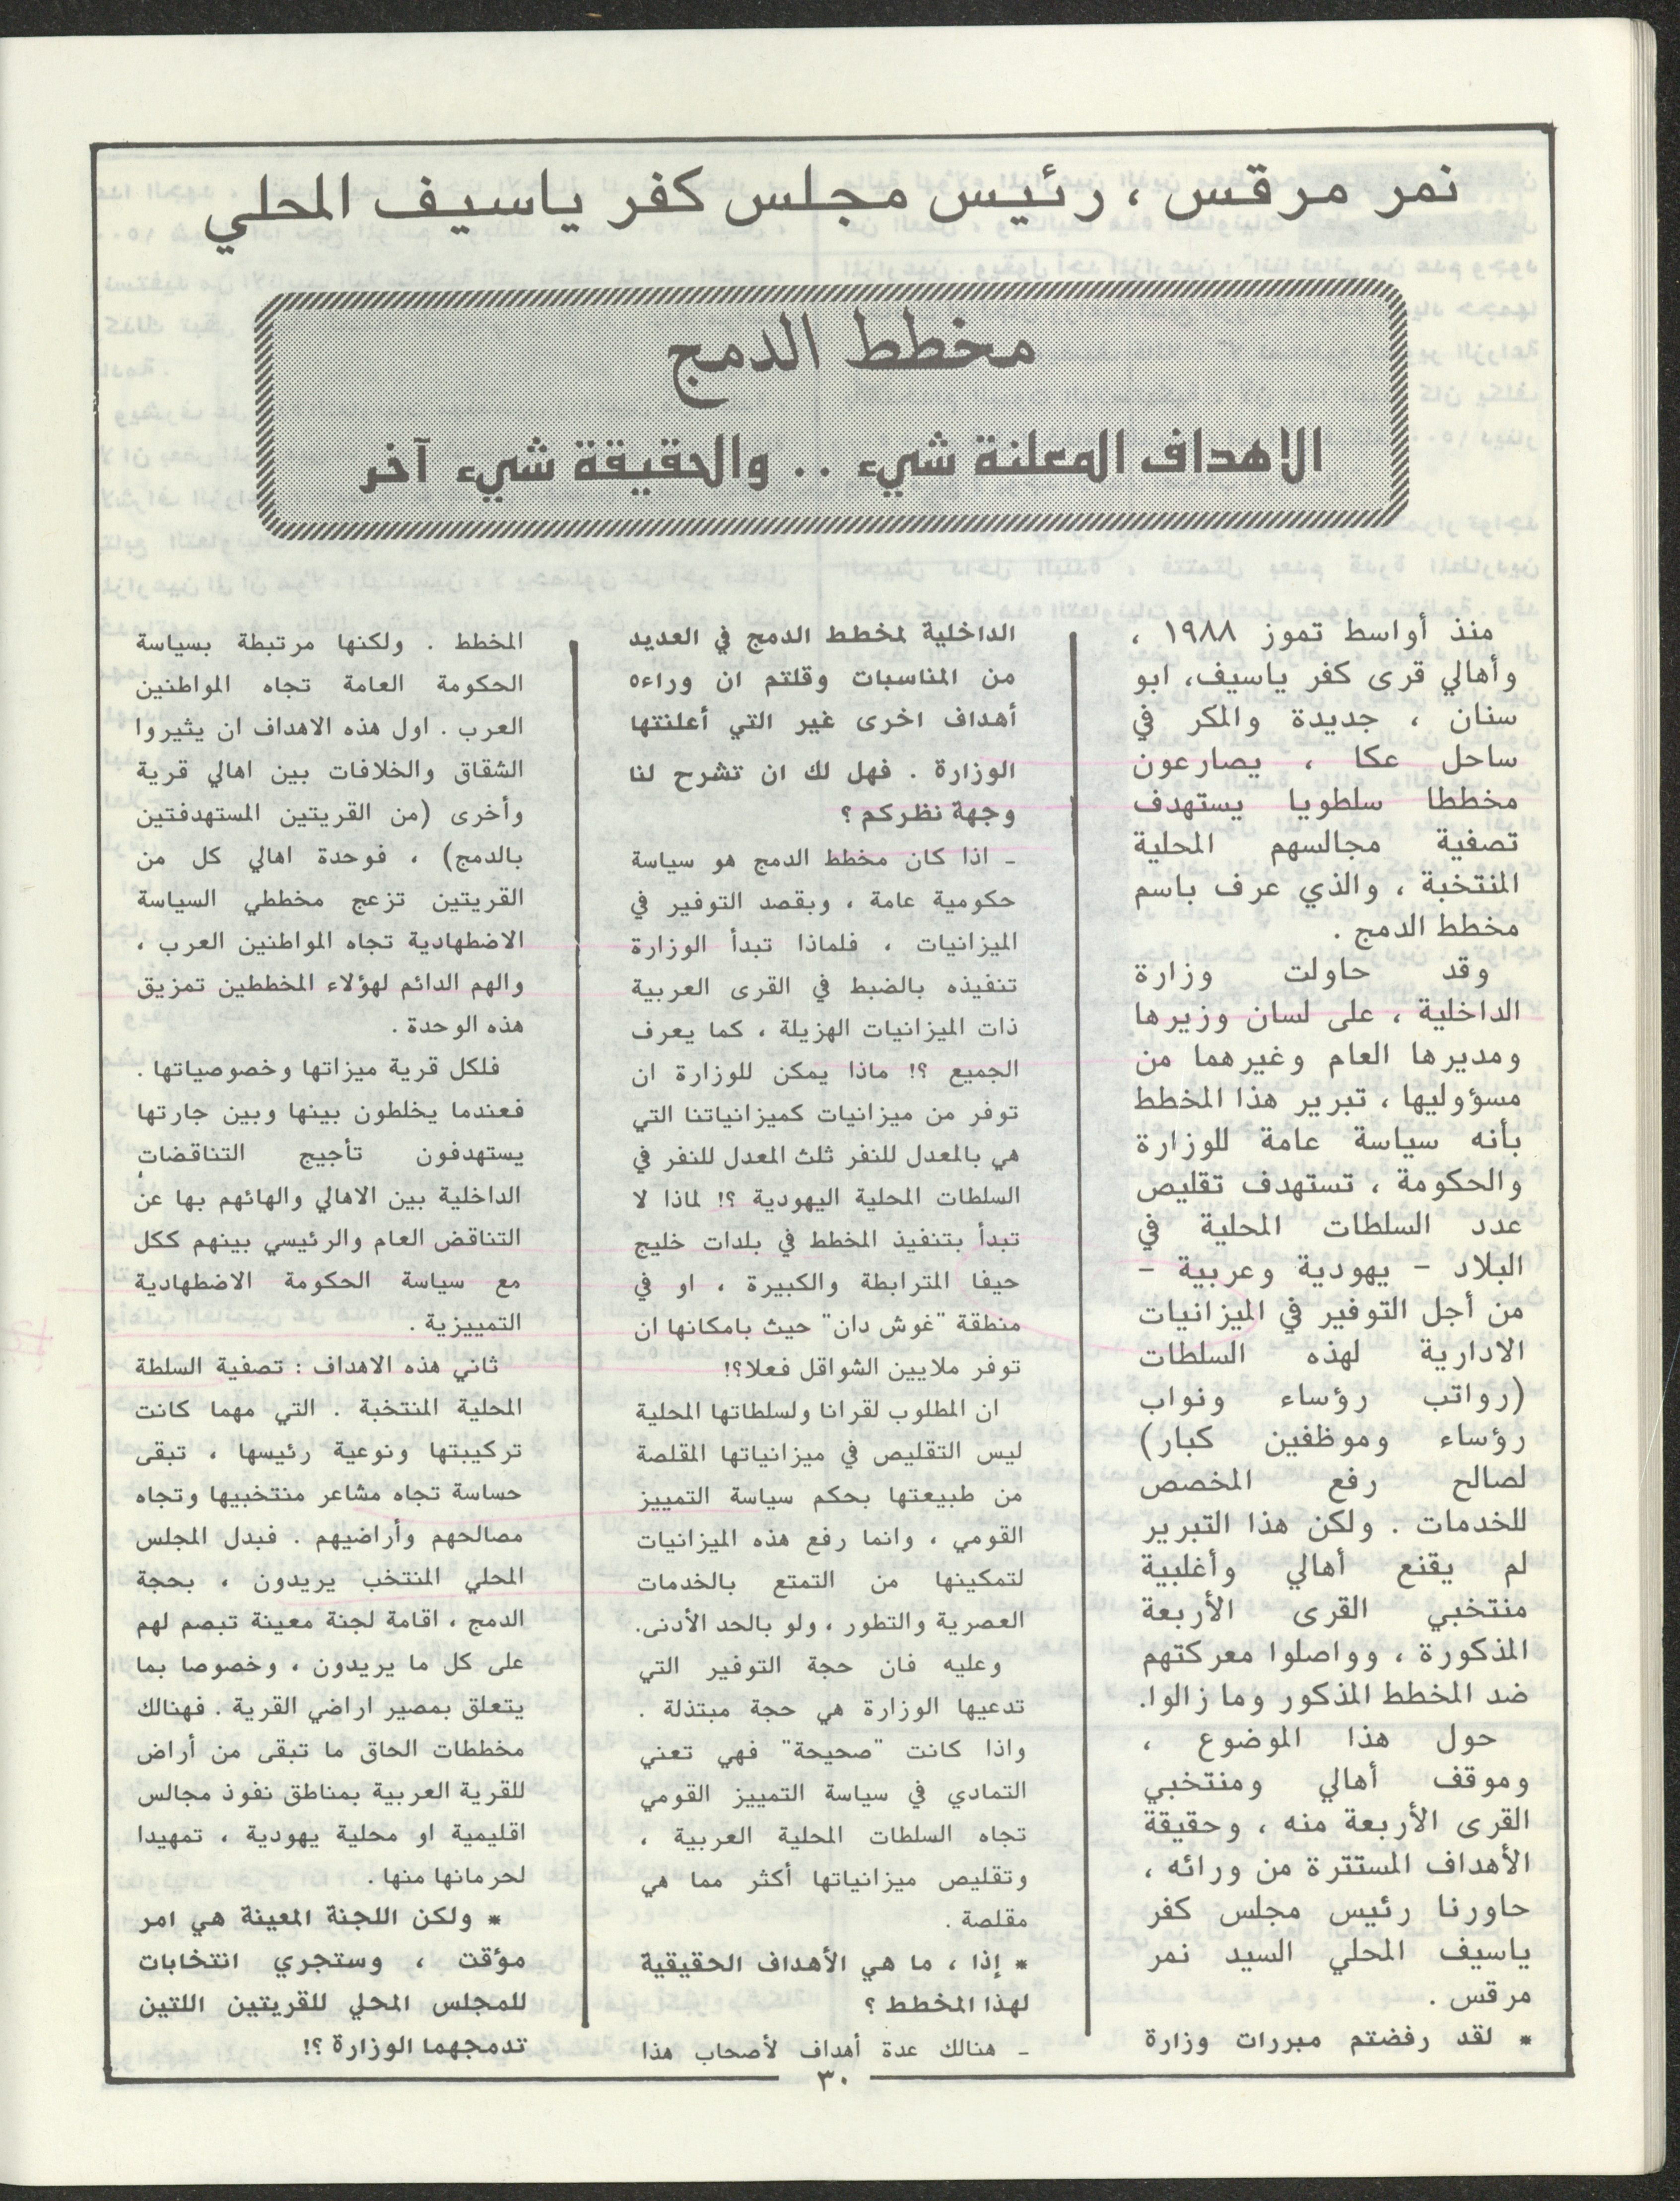 نمر مرقس ، رئيس مجلس كفر ياسيف المحلي
مخطط الدمج
الاهداف المعلنة شيء . . والحقيقة شيء آخر
منذ أواسط تموز ١٩٨٨ ،
وأهالي قرى كفر ياسيف، ابو
سنان ، جديدة والمكر في
ساحل عكا ، يصارعون
مخططا سلطويا يستهدف
تصفية مجالسهم المحلية
المنتخبة ، والذي عرف باسم
مخطط الدمج .
وقد حاولت وزارة
الداخلية ، على لسان وزيرها
ومديرها العام وغيرهما من
مسؤوليها ، تبرير هذا المخطط
بأنه سياسة عامة للوزارة
والحكومة ، تستهدف تقليص
عدد السلطات المحلية في
البلاد - يهودية وعربية -
من أجل التوفير في الميزانيات
الادارية لهذه السلطات
(رواتب رؤساء ونواب
رؤساء وموظفين كبار)
لصالح رفع المخصص
للخدمات . ولكن هذا التبرير
لم يقنع أهالي وأغلبية
منتخبي القرى الأربعة
المذكورة ، وواصلوا معركتهم
ضد المخطط المذكور وما زالوا.
حول هذا الموضوع ،
وموقف أهالي ومنتخبي
القرى الأربعة منه ، وحقيقة
الأهداف المستترة من ورائه ،
حاورنا رئيس مجلس كفر
ياسيف المحلي السيد نمر
مرقس .
* لقد رفضتم مبررات وزارة
الداخلية لمخطط الدمج في العديد
من المناسبات وقلتم ان وراءه
أهداف اخرى غير التي أعلنتها
الوزارة . فهل لك ان تشرح لنا
وجهة نظركم ؟
- اذا كان مخطط الدمج هو سياسة
حكومية عامة ، وبقصد التوفير في
الميزانيات ، فلماذا تبدأ الوزارة
تنفيذه بالضبط في القرى العربية
ذات الميزانيات الهزيلة ، كما يعرف
الجميع ؟! ماذا يمكن للوزارة ان
توفر من ميزانيات كميزانياتنا التي
هي بالمعدل للنفر ثلث المعدل للنفر في
السلطات المحلية اليهودية ؟! لماذا لا
تبدأ بتنفيذ المخطط في بلدات خليج
حيفا المترابطة والكبيرة ، او في
منطقة "غوش دان" حيث بامكانها ان
توفر ملايين الشواقل فعلا؟!
ان المطلوب لقرانا ولسلطاتها المحلية
ليس التقليص في ميزانياتها المقلصة
من طبيعتها بحكم سياسة التمييز
القومي ، وانما رفع هذه الميزانيات
لتمكينها من التمتع بالخدمات
العصرية والتطور ، ولو بالحد الأدنى.
وعليه فان حجة التوفير التي
تدعيها الوزارة هي حجة مبتذلة .
واذا كانت "صحيحة" فهي تعني
التمادي في سياسة التمييز القومي
تجاه السلطات المحلية العربية ،
وتقليص ميزانياتها أكثر مما هي
مقلصة .
* إذا ، ما هي الأهداف الحقيقية
لهذا المخطط ؟
- هنالك عدة أهداف لأصحاب هذا
المخطط . ولكنها مرتبطة بسياسة
الحكومة العامة تجاه المواطنين
العرب . اول هذه الاهداف ان يثيروا
الشقاق والخلافات بين اهالي قرية
وأخرى (من القريتين المستهدفتين
بالدمج) ، فوحدة اهالي كل من
القريتين تزعج مخططي السياسة
الاضطهادية تجاه المواطنين العرب ،
والهم الدائم لهؤلاء المخططين تمزيق
هذه الوحدة .
فلكل قرية ميزاتها وخصوصياتها .
فعندما يخلطون بينها وبين جارتها
يستهدفون تأجيج التناقضات
الداخلية بين الاهالي والهائهم بها عن
التناقض العام والرئيسي بينهم ككل
مع سياسة الحكومة الاضطهادية
التمييزية .
ثاني هذه الاهداف : تصفية السلطة
المحلية المنتخبة . التي مهما كانت
تركيبتها ونوعية رئيسها ، تبقى
حساسة تجاه مشاعر منتخبيها وتجاه
مصالحهم وأراضيهم . فبدل المجلس
المحلي المنتخب يريدون ، بحجة
الدمج ، اقامة لجنة معينة تبصم لهم
على كل ما يريدون ، وخصوصا بما
يتعلق بمصير اراضي القرية . فهنالك
مخططات الحاق ما تبقى من أراض
للقرية العربية بمناطق نفوذ مجالس
اقليمية او محلية يهودية ، تمهيدا
لحرمانها منها .
* ولكن اللجنة المعينة هي امر
مؤقت ، وستجري انتخابات
للمجلس المحلي للقريتين اللتين
تدمجهما الوزارة ؟!
٣٠